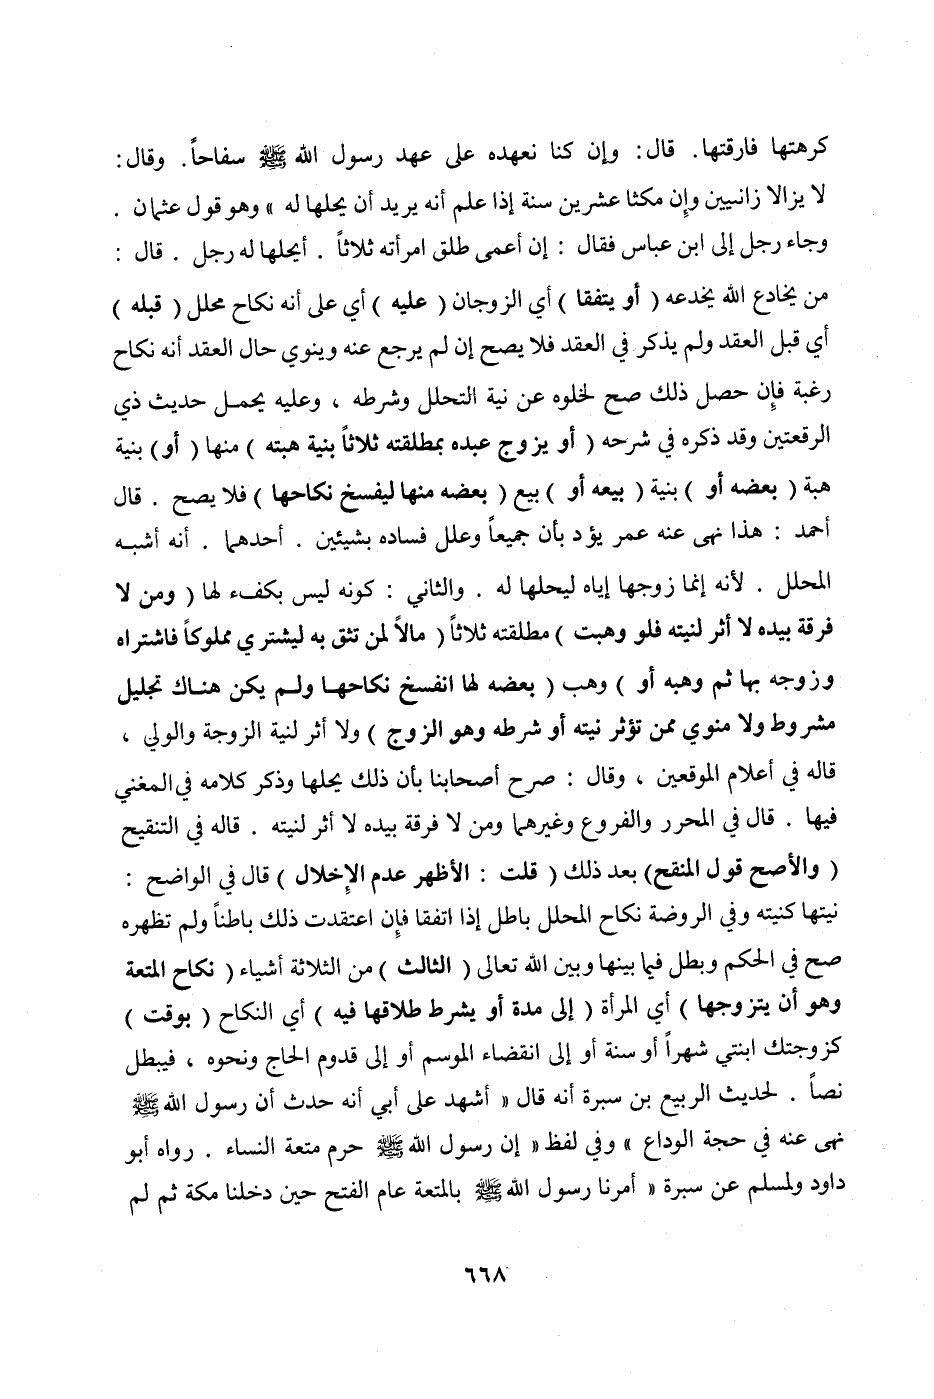 كرهتها فارقتها. قال: وإن كنا نعهده على عهد رسول الله ﷺ سفاحاً. وقال:
لا يزالا زانيين وإن مكثا عشرين سنة إذا علم أنه يريد أن يحلها له » وهو قول عثمان .
وجاء رجل إلى ابن عباس فقال : إن أعمى طلق امرأته ثلاثاً . أيحلها له رجل . قال :
من يخادع الله يخدعه ( أو يتفقا ) أي الزوجان ( عليه ) أي على أنه نكاح محلل ( قبله )
أي قبل العقد ولم يذكر في العقد فلا يصح إن لم يرجع عنه وينوي حال العقد أنه نكاح
رغبة فإن حصل ذلك صح لخلوه عن نية التحلل وشرطه ، وعليه يحمل حديث ذي
الرقعتين وقد ذكره في شرحه ( أو يزوج عبده بمطلقته ثلاثاً بنية هبته ) منها ( أو) بنية
هبة ( بعضه أو ) بنية ( بيعه أو ) بيع ( بعضه منها ليفسخ نكاحها ) فلا يصح . قال
أحمد : هذا نهى عنه عمر يؤد بأن جميعاً وعلل فساده بشيئين . أحدهما . أنه أشبه
المحلل . لأنه إنما زوجها إياه ليحلها له . والثاني : كونه ليس بكفء لها ( ومن لا
فرقة بيده لا أثر لنيته فلو وهبت ) مطلقته ثلاثاً ( مالاً لمن تثق به ليشتري مملوكاً فاشتراه
وزوجه بها ثم وهبه أو ) وهب ( بعضه لها انفسخ نكاحها ولم يكن هناك تجليل
مشروط ولا منوي ممن تؤثر نيته أو شرطه وهو الزوج ) ولا أثر لنية الزوجة والولي ،
قاله في أعلام الموقعين ، وقال : صرح أصحابنا بأن ذلك يحلها وذكر كلامه في المغني
فيها . قال في المحرر والفروع وغيرهما ومن لا فرقة بيده لا أثر لنيته . قاله في التنقيح
( والأصح قول المنقح) بعد ذلك ( قلت : الأظهر عدم الإخلال ) قال في الواضح :
نيتها كنيته وفي الروضة نكاح المحلل باطل إذا اتفقا فإن اعتقدت ذلك باطناً ولم تظهره
صح في الحكم وبطل فيما بينها وبين الله تعالى ( الثالث ) من الثلاثة أشياء ( نكاح المتعة
وهو أن يتزوجها ) أي المرأة ( إلى مدة أو يشرط طلاقها فيه ) أي النكاح ( بوقت )
كزوجتك ابنتي شهراً أو سنة أو إلى انقضاء الموسم أو إلى قدوم الحاج ونحوه ، فيبطل
نصاً . لحديث الربيع بن سبرة أنه قال « أشهد على أبي أنه حدث أن رسول الله ﷺ
نهى عنه في حجة الوداع » وفي لفظ « إن رسول الله ﷺ حرم متعة النساء . رواه أبو
داود ولمسلم عن سبرة « أمرنا رسول الله ﷺ بالمتعة عام الفتح حين دخلنا مكة ثم لم
٦٦٨